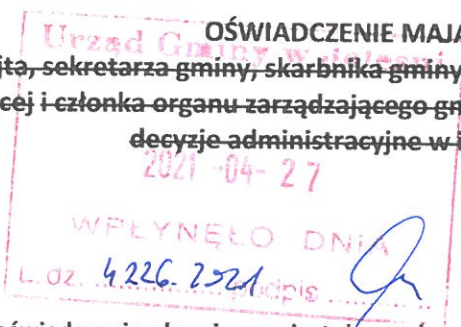 OŚWIADCZENIE MAJĄ
Urząd Gminy w Jeleśni
jta, sekretarza gminy, skarbnika gminy
cej i członka organu zarządzającego gm
decyzje administracyjne w i
2021 -04- 27
WPŁYNĘŁO DNIA
L. dz. 4226.2021 podpis